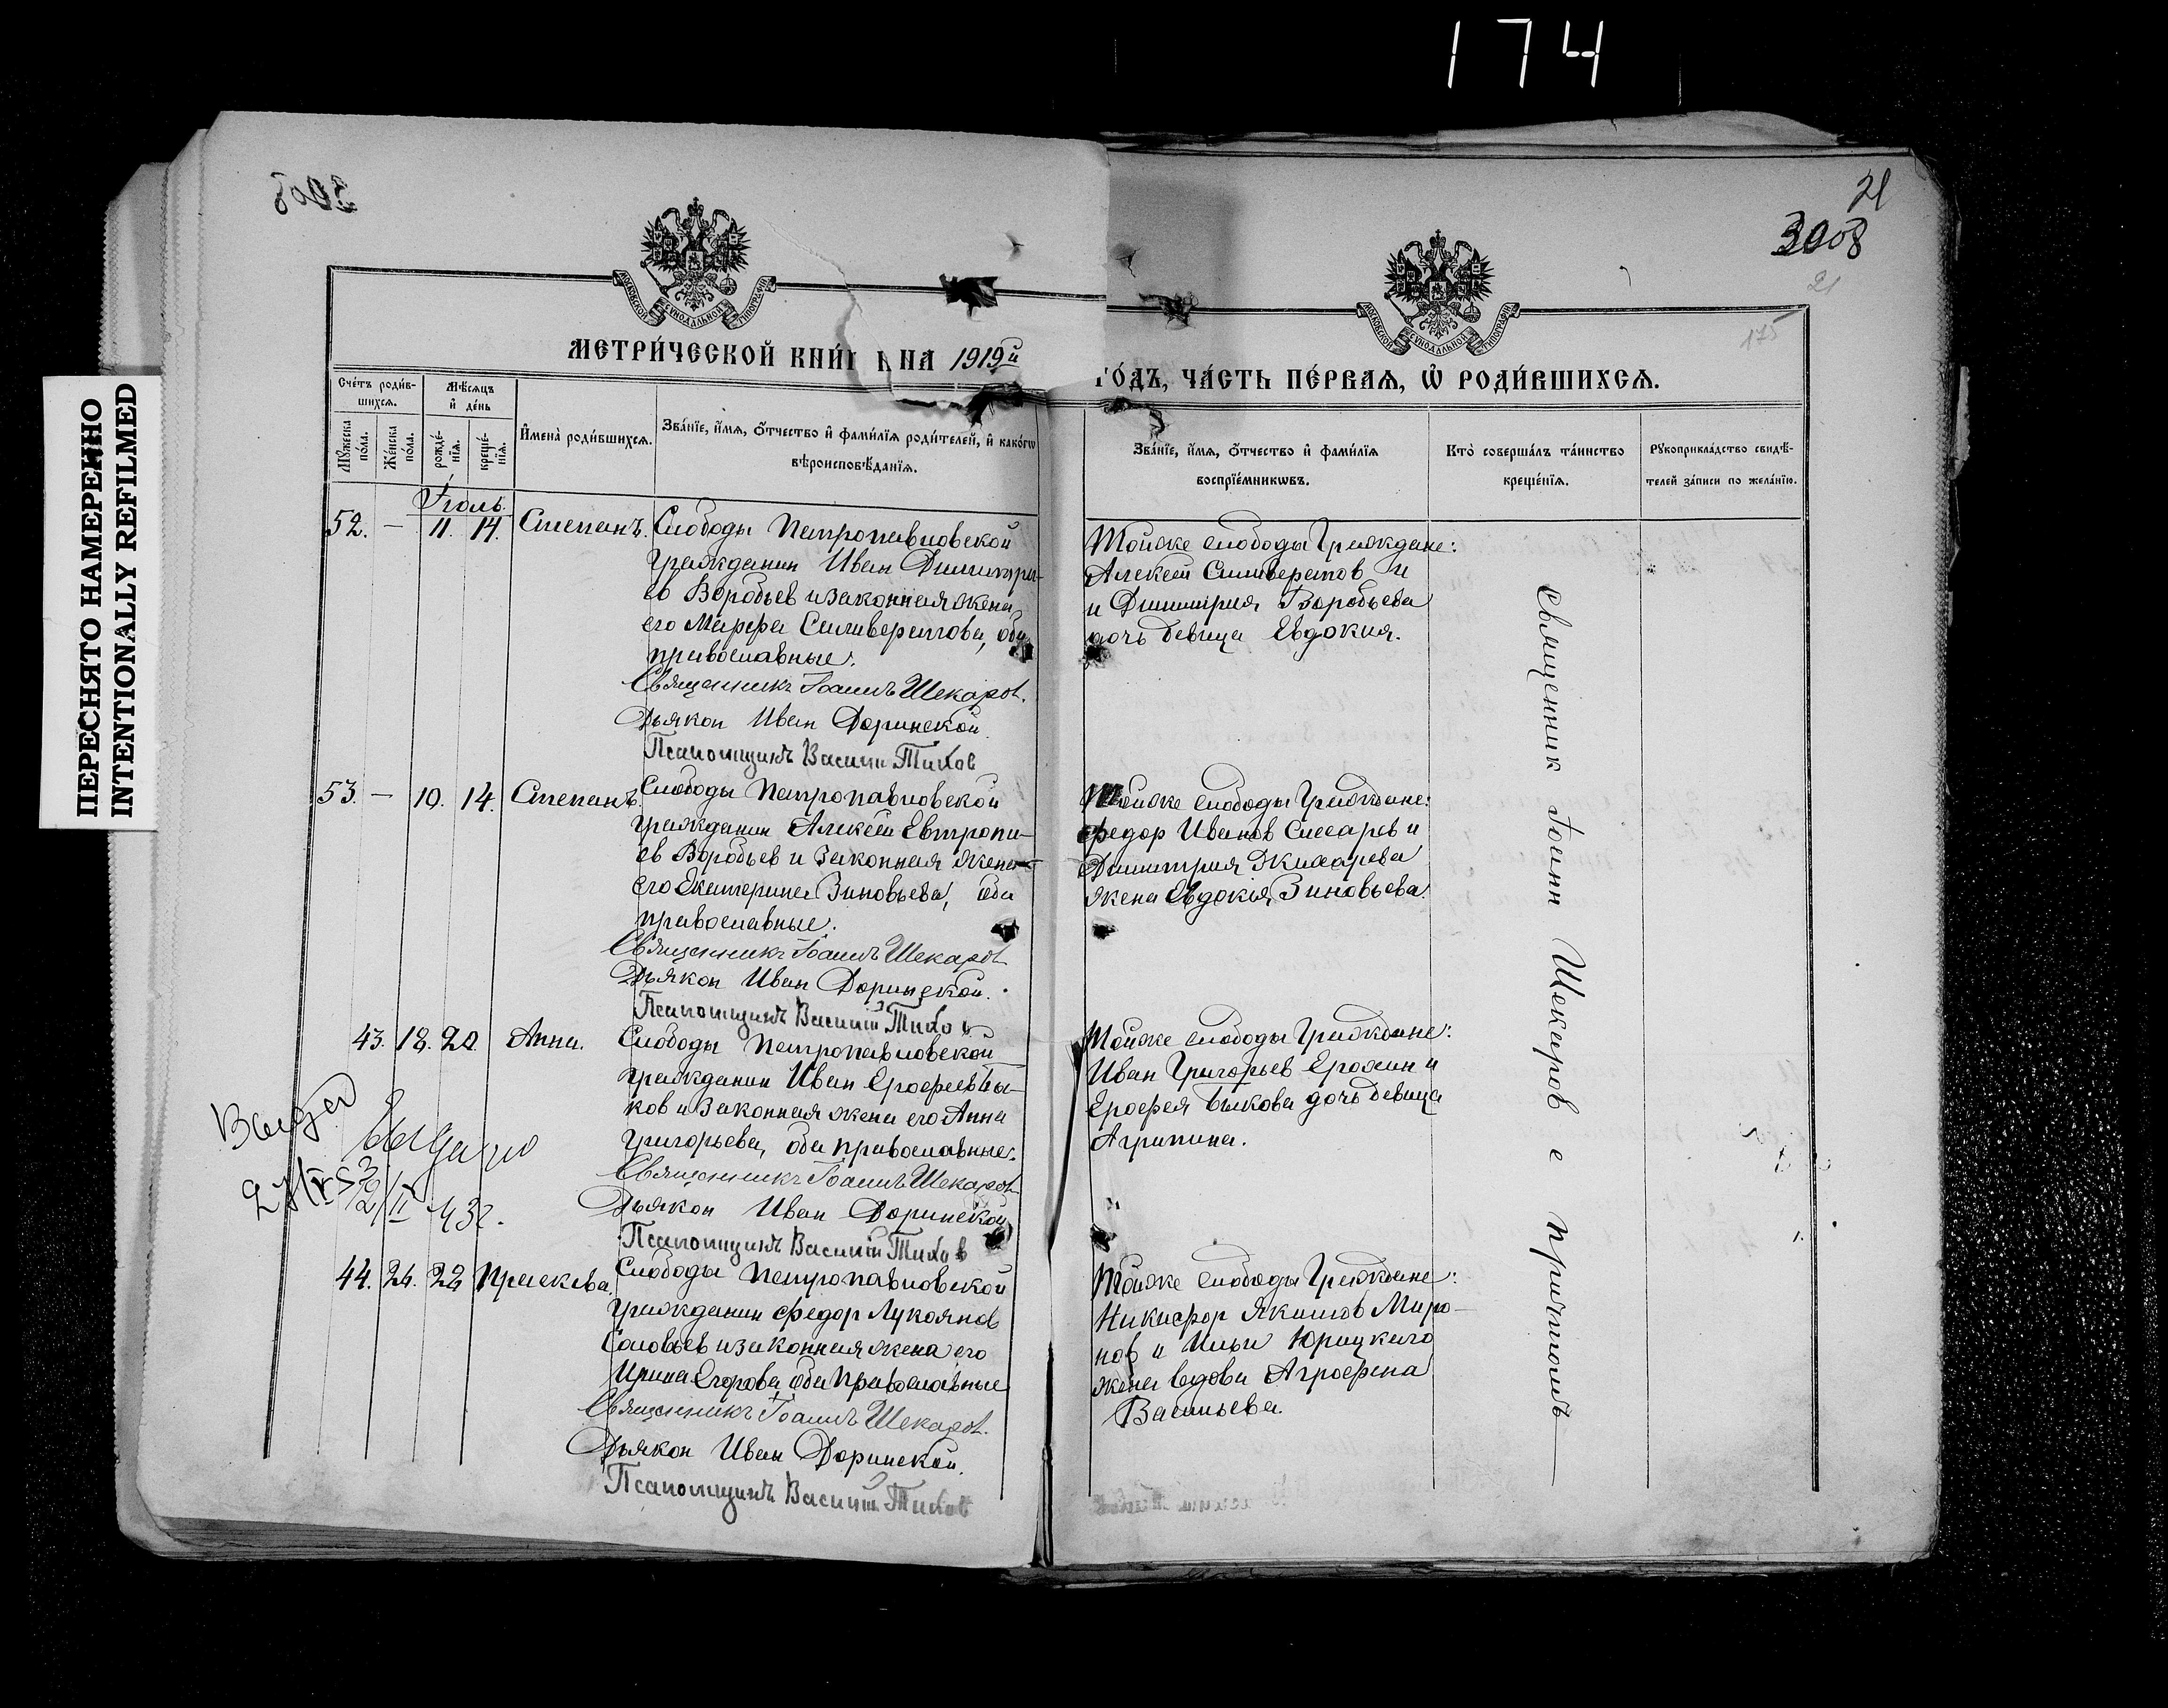 174
ПЕРЕСНЯТО НАМЕРЕННО
INTENTIONALLY REFILMED
21
3008
21
175
МОСКОВСКОЙ СѴНОДАЛЬНОЙ ТИПОГРАФІИ
МОСКОВСКОЙ СѴНОДАЛЬНОЙ ТИПОГРАФІИ
МЕТРИ́ЧЕСКОЙ КНИ́Г НА 1919й
ГО́ДЪ, ЧА́СТЬ ПЕ́РВАЯ, Ѡ РОДИ́ВШИХСЯ.
Сче́тъ роди́в-
шихся.
Мѣ́сяцъ
и҆ де́нь
Мꙋ́жеска
по́ла.
Же́нска
по́ла.
рожде́-
нїя.
креще́-
нїя.
И҆мена̀ роди́вшихся.
Зва́нїе, и҆́мя, ѻ҆́тчество и҆ фами́лїя роди́телей, и҆ како́гѡ
вѣроисповѣ́данїя.
Зва́нїе, и҆́мя, ѻ҆́тчество и҆ фами́лїя
воспрїе́мникѡвъ.
Кто̀ соверша́лъ та́инство
креще́нїя.
Рꙋкоприкла́дство свидѣ́-
телей за́писи по жела́нїю.
Іюль.
52. — 11. 14. Степанъ. Слободы Петропавловской
гражданин Иван Димитри-
ев Воробьев и законная жена
его Марфа Силиверстова, оба
православные.
Священникъ Іоаннъ Шекаров.
Дьякон Иван Доринской.
Псаломщикъ Василий Тихов
Тойже слободы Граждане:
Алексей Силиверстов и
и Димитрия Воробьева
дочь девица Евдокия.
53. — 10. 14. Степанъ. Слободы Петропавловской
гражданин Алексей Евтропи-
ев Воробьев и законная жена
его Екатерина Зиновьева, оба
православные.
Священникъ Іоаннъ Шекаров
Дьякон Иван Доринской.
Псаломщикъ Василій Тихов
Тойже слободы Граждане:
Федор Иванов Слесарев и
Димитрия Жихарева
жена Евдокія Зиновьева.
43. 18. 20. Анна. Слободы Петропавловской
гражданин Иван Ерофеев Бы-
ков и законная жена его Анна
Григорьева, оба православные.
Священникъ Іоаннъ Шекаров
Дьякон Иван Доринской
Псаломщикъ Василій Тихов
Тойже слободы Граждане:
Иван Григорьев Ерохин и
Ерофея Быкова дочь девица
Агрипина.
Выдано
44. 24. 28 Праскева. Слободы Петропавловской
гражданин Федор Лукоянов
Соловьев и законная жена его
Ирина Егорова оба православные
Священникъ Іоаннъ Шекаров.
Дьякон Иван Доринской.
Псаломщикъ Василій Тихов
Тойже слободы Граждане:
Никифор Якимов Миро-
нов и Ильи Юрицкого
жена вдова Агрофена
Васильева.
Священник Іоанн Шекаров с причтомъ